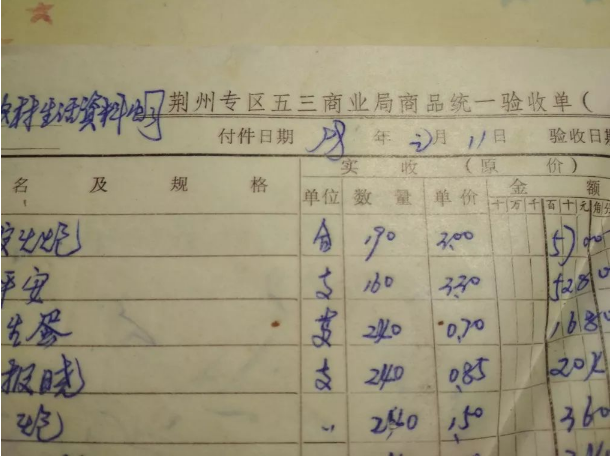 农村生活资料公司 荆州专区五三商业局商品统一验收单(
付件日期 年 月 11 日 验收日期
实 收 (原 价)
名 及 规 格 单位 数量 单价 金 额
十 万 千 百 十 元 角 分
火炮 盒 190 3.00 5700
平安 支 160 3.30 5280
生蛋 240 0.70 1680
报晓 支 240 0.85 204
炮 〃 240 1.50 360